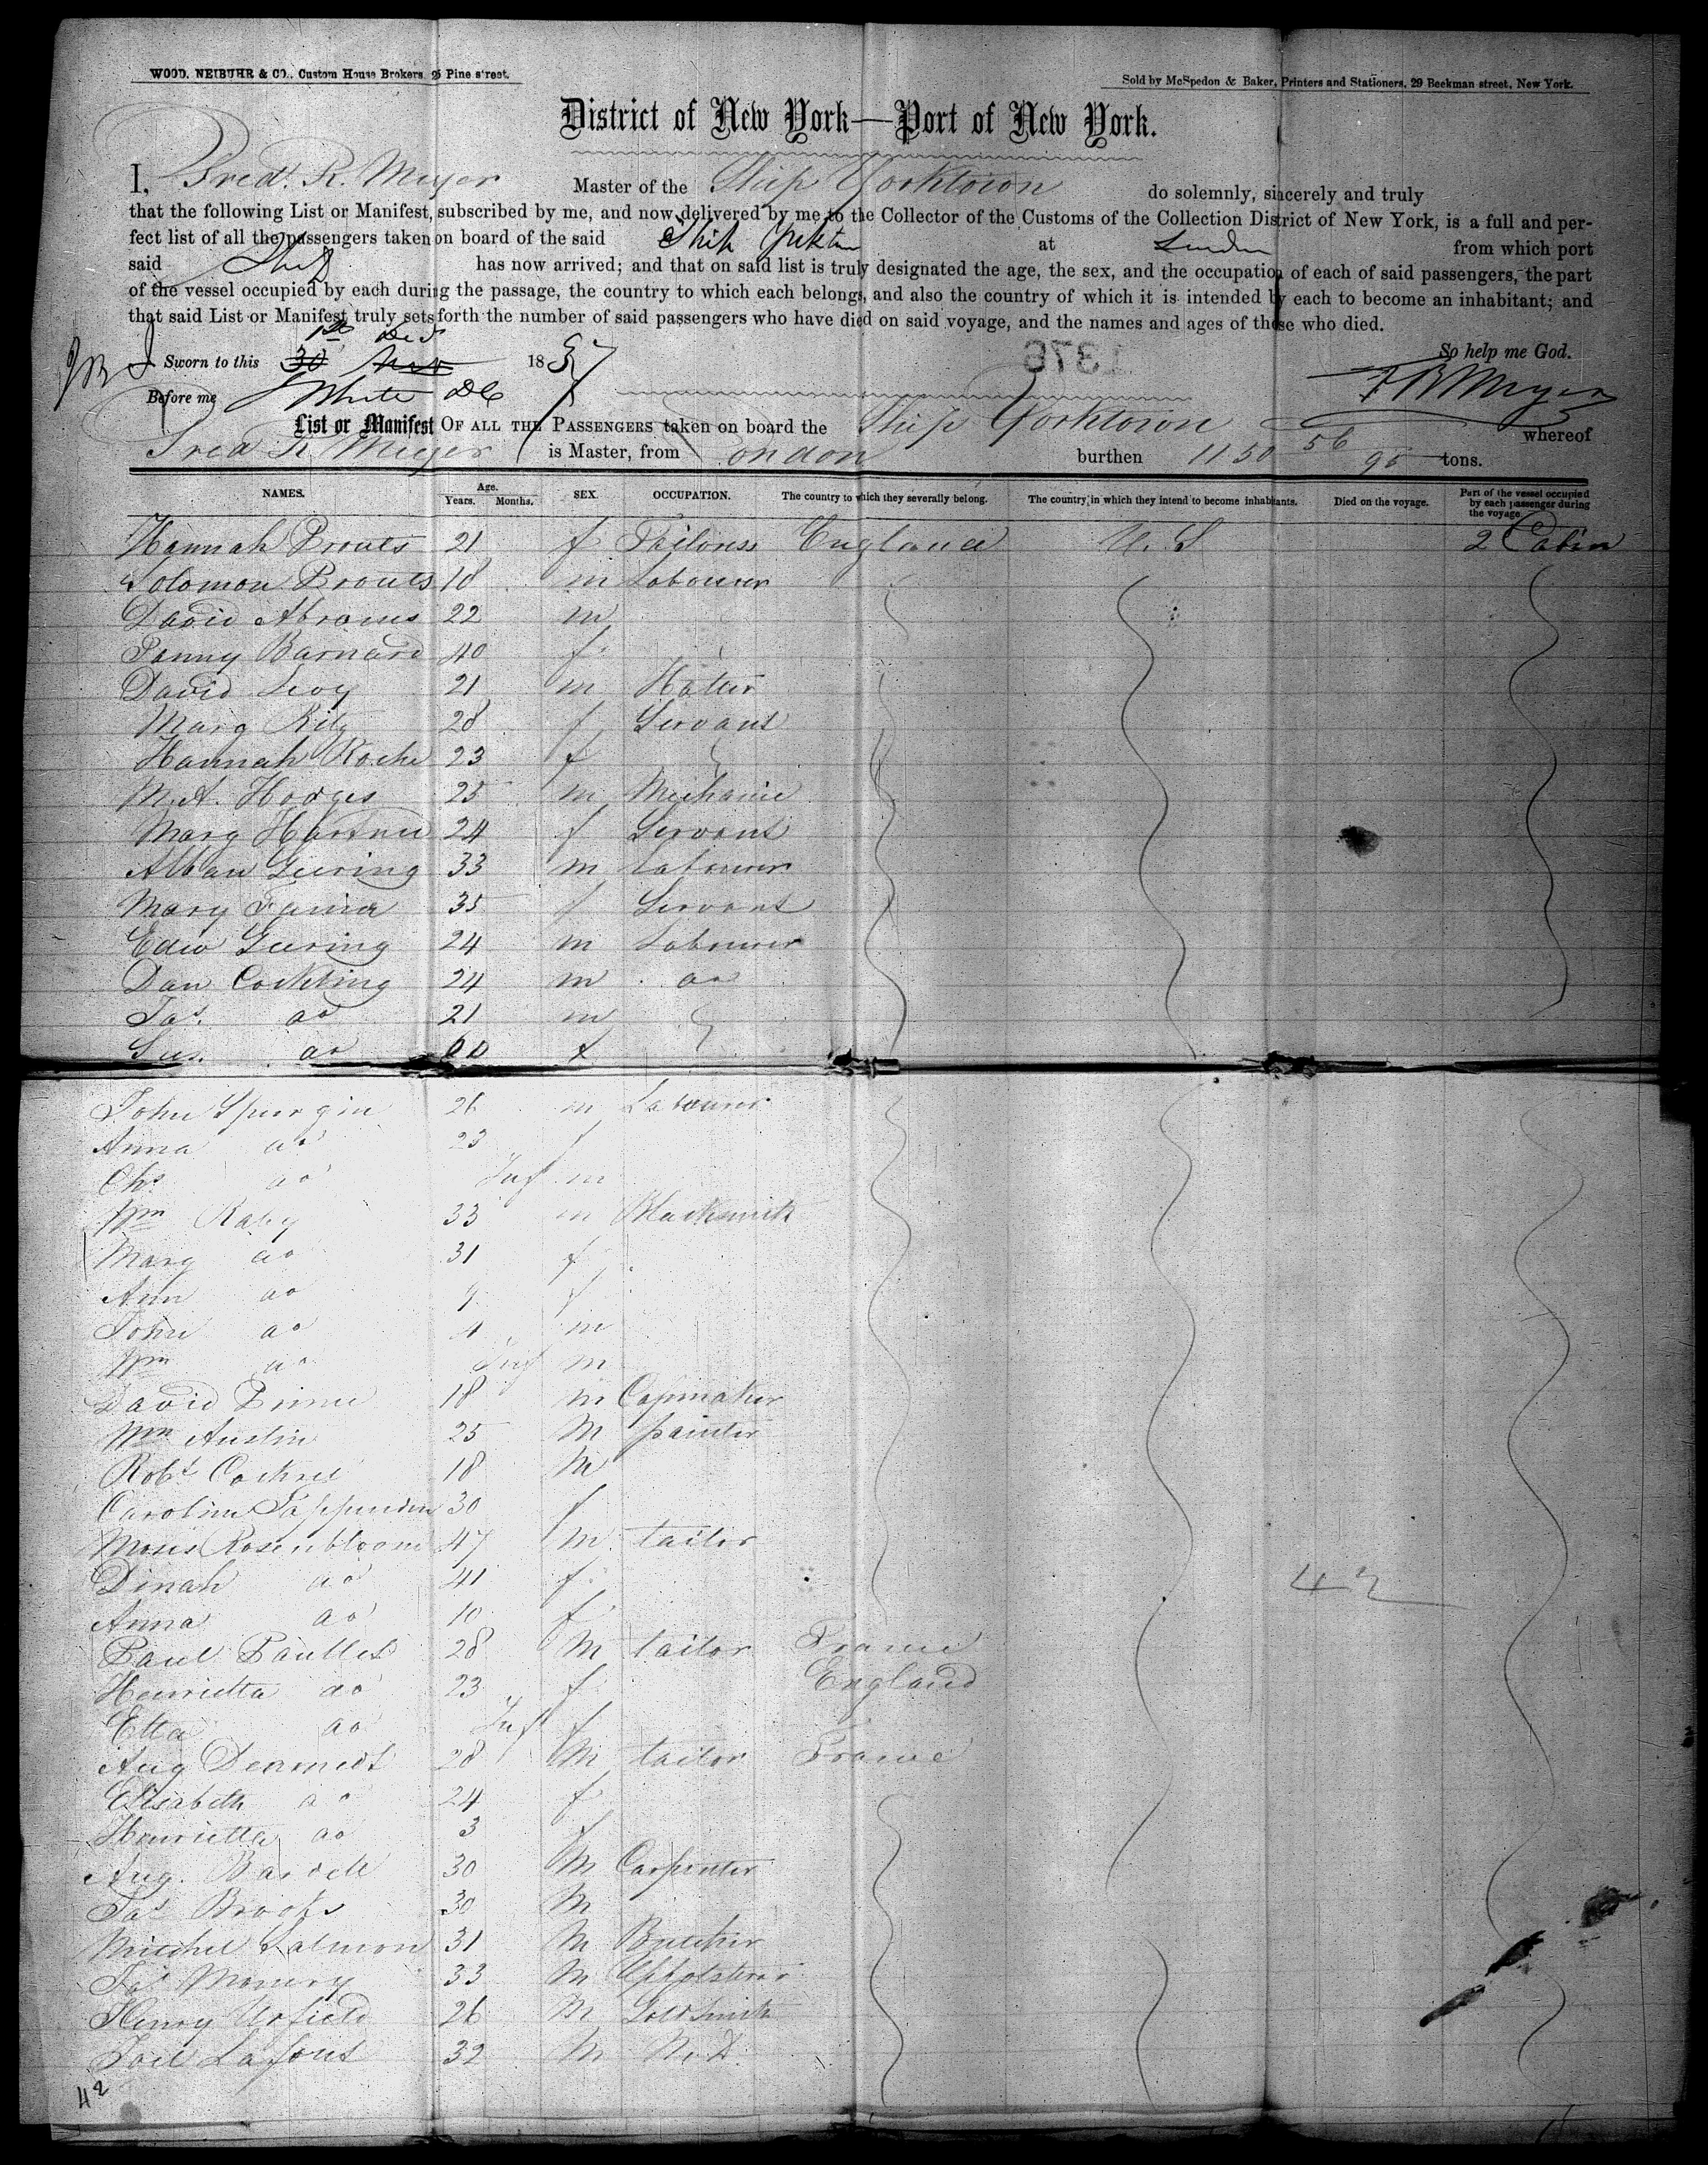 WOOD, NEIBUHR & CO., Custom House Brokers, 25 Pine street.
Sold by McSpedon & Baker, Printers and Stationers, 29 Beekman street, New York.
District of New York—Port of New York.
I, Fred. R. Meyer Master of the Ship Yorktown do solemnly, sincerely and truly
that the following List or Manifest, subscribed by me, and now delivered by me to the Collector of the Customs of the Collection District of New York, is a full and per-
fect list of all the passengers taken on board of the said Ship Yorktown at London from which port
said Ship has now arrived; and that on said list is truly designated the age, the sex, and the occupation of each of said passengers, the part
of the vessel occupied by each during the passage, the country to which each belongs, and also the country of which it is intended by each to become an inhabitant; and
that said List or Manifest truly sets forth the number of said passengers who have died on said voyage, and the names and ages of those who died.
1st Dec
Sworn to this 30 Nov 1857 So help me God.
1376
Before me White DC F R Meyer
List or Manifest OF ALL THE PASSENGERS taken on board the Ship Yorktown whereof
Fred R Meyer is Master, from London burthen 1150 56/95 tons.
NAMES. Age. Years. Months. SEX. OCCUPATION. The country to which they severally belong. The country in which they intend to become inhabitants. Died on the voyage. Part of the vessel occupied by each passenger during the voyage
Hannah 21 f Tailoress England U.S 2 Cabin
Solomon 18 m Labourer
David Abrams 22 m
Barnard 40 f
David Levy 21 m Hatter
Mary 28 f Servant
Hannah Roche 23 f
M.A. Hodges 25 m Mechanic
Mary 24 f Servant
Alban Geering 33 m Labourer
Mary 35 f Servant
Edw Geering 24 m Labourer
Dan Cockling 24 m do
Jas. do 21 m
do 60 f
John Spurgin 26 m Labourer
Anna do 23 f
Chs do Inf m
Wm Raby 33 m Blacksmith
Mary do 31 f
Ann do f
John do 4 m
Wm do Inf m
David 18 m Capmaker
Wm Austin 25 M painter
Robt 18 M
Caroline 30 f
Moses Rosenbloom 47 M tailor
Dinah do 41 f 42
Anna do 10 f
Paul 28 M tailor France
Henrietta do 23 f England
Etta do Inf f
Aug 28 M tailor France
Elisabeth do 24 f
Henrietta do 3 f
Aug. 30 M Carpenter
Jas Brooks 30 M
Salmon 31 M Butcher
Jas 33 M Upholsterer
Henry 26 M Goldsmith
32 M M.D.
42